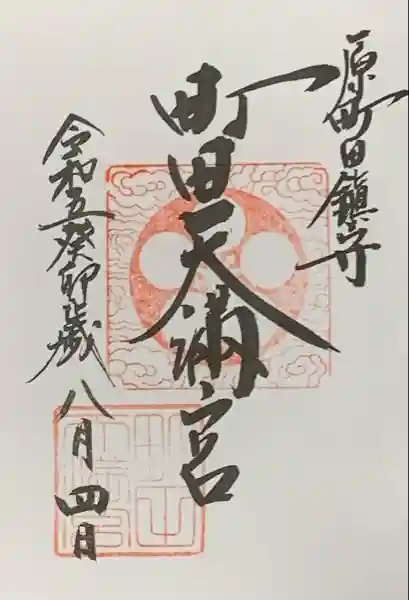 原町田鎮守
町田天満宮
令和五癸卯歳
八月四日